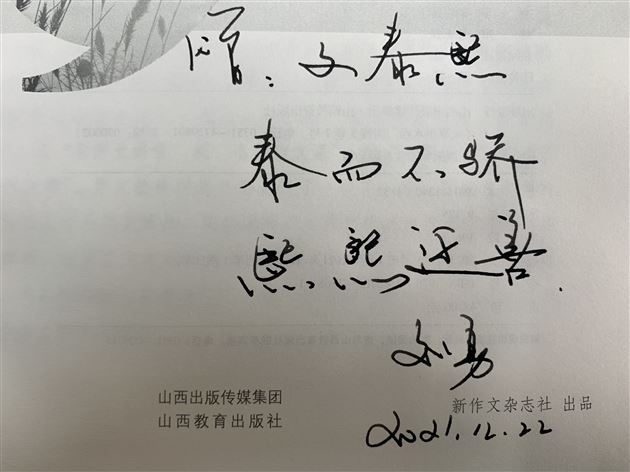 ：文泰熙
泰而不骄
熙熙善
刘勇
2021.12.22
山西出版传媒集团
山西教育出版社
新作文杂志社 出品